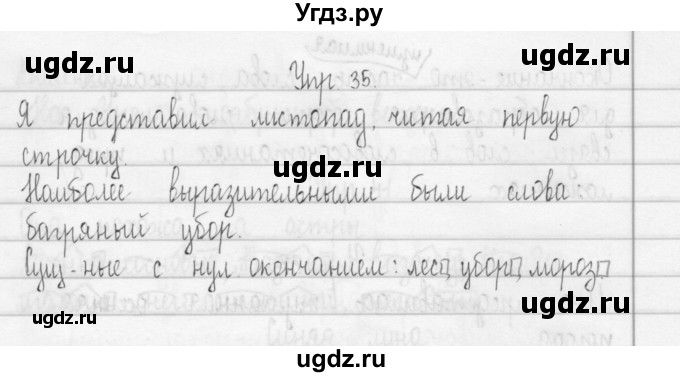 Угдз.ру
ugdz.ru ugdz.ru ugdz.ru
Упр 35.
Я представил листопад, читая первую
строчку.
ugdz.ru ugdz.ru
Наиболее выразительными были слова:
багряный убор.
ugdz.ru ugdz.ru ugdz.ru
Сущ-ные с нул окончанием: лес□ убор□ мороз□
ugdz.ru ugdz.ru
ugdz.ru